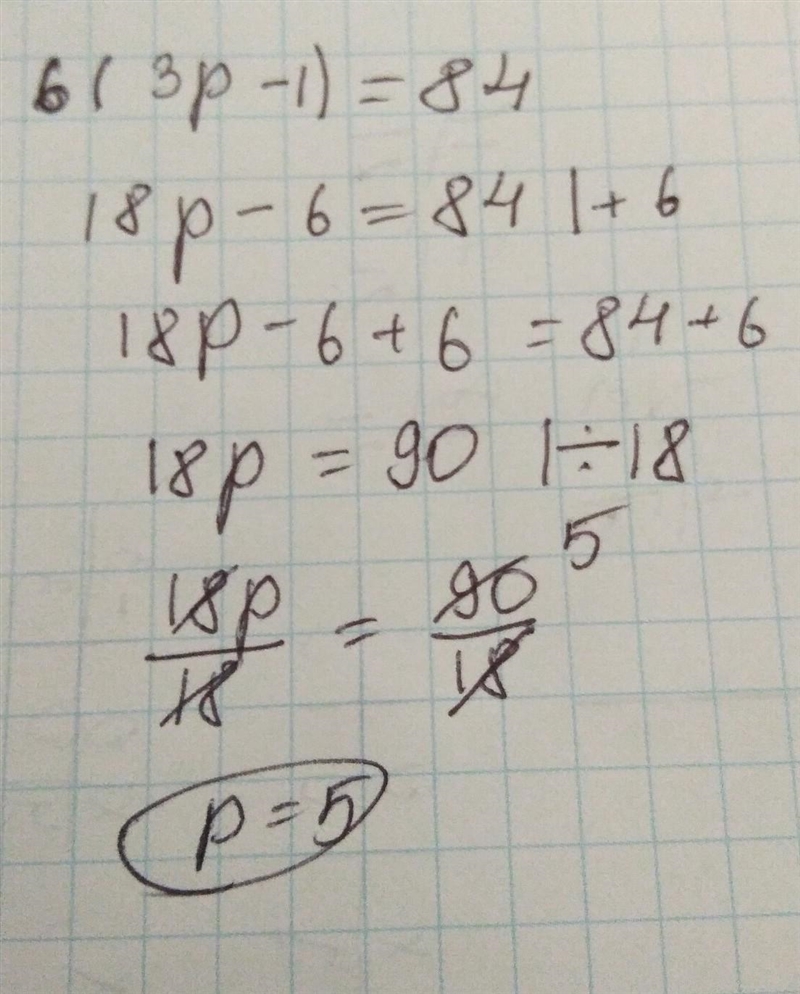 6(3p-1)=84
18p-6=84 |+6
18p-6+6=84+6
18p=90 |÷18
18p/18=90/18 5
p=5